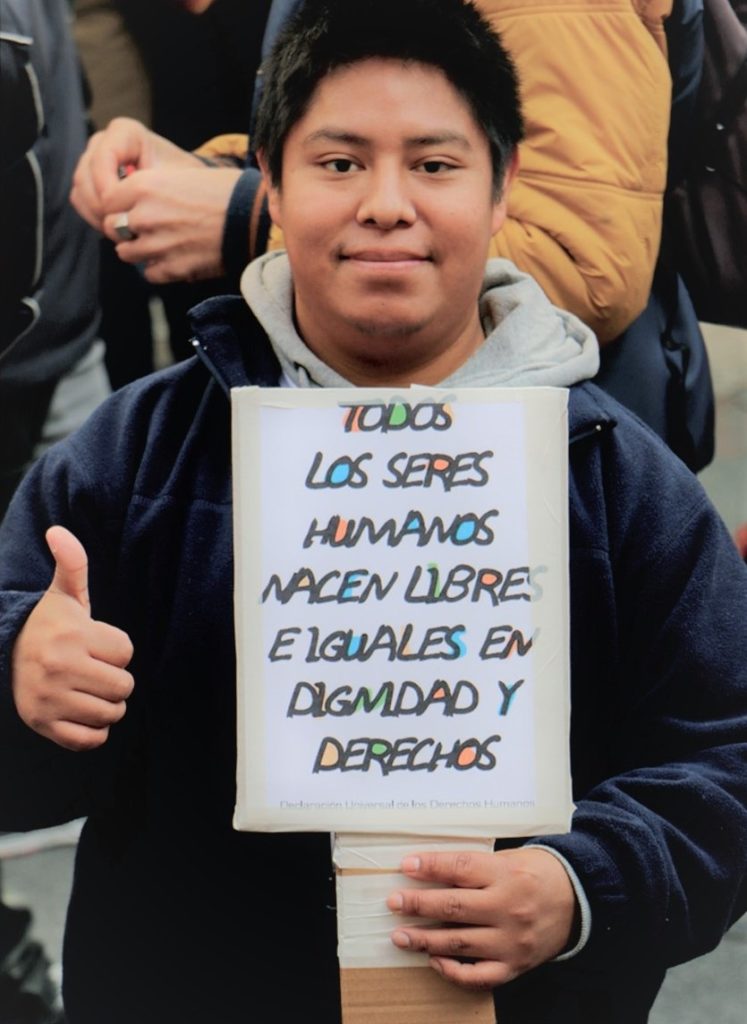 TODOS
LOS SERES
HUMANOS
NACEN LIBRES
E IGUALES EN
DIGNIDAD Y
DERECHOS
Declaración Universal de los Derechos Humanos